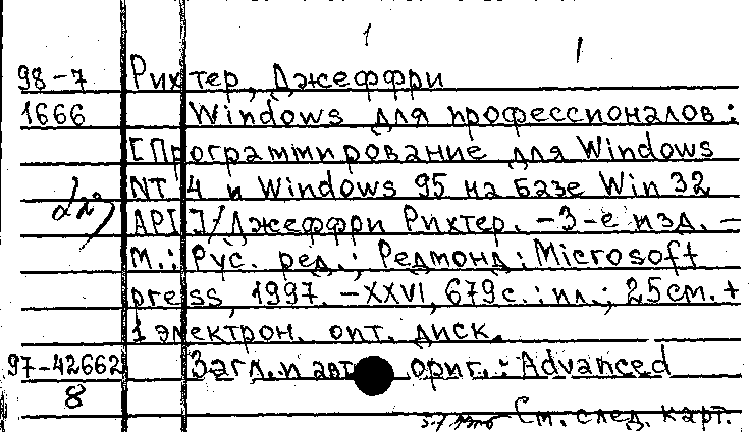 1
98-7 Рихтер, Джеффри
1666 Windows для профессионалов:
[Программирование для Windows
NT 4 и Windows 95 на базе Win 32
API] / Джеффри Рихтер. - 3-е изд. -
М.: Рус. ред.; Редмонд: Microsoft
press, 1997. - XXVI, 679 с.: ил.; 25 см. +
1 электрон. опт. диск.
97-42662 Загл. и авт. ориг.: Advanced
8
См. след. карт.